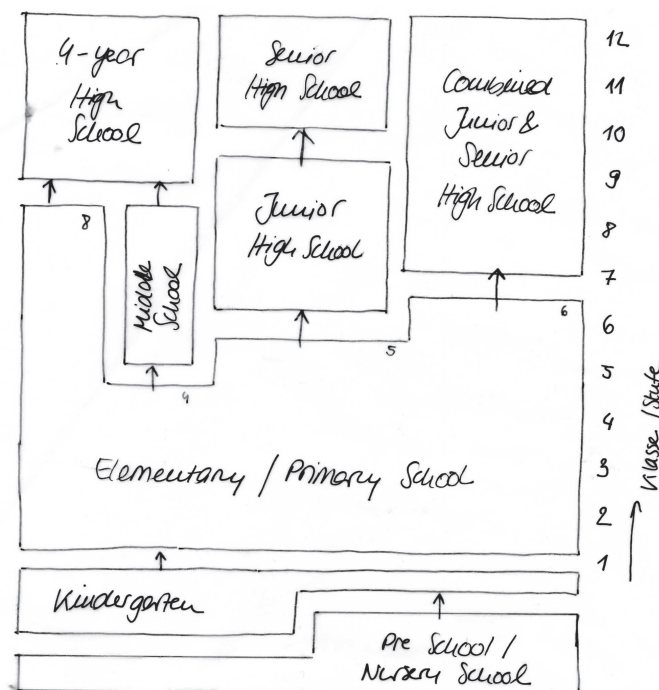 4-year
High
School
Senior
High School
Combined
Junior &
Senior
High School
Junior
High School
Middle
School
8
4
5
6
Elementary / Primary School
Kindergarten
Pre School /
Nursery School
12
11
10
9
8
7
6
5
4
3
2
1
Klasse / Stufe